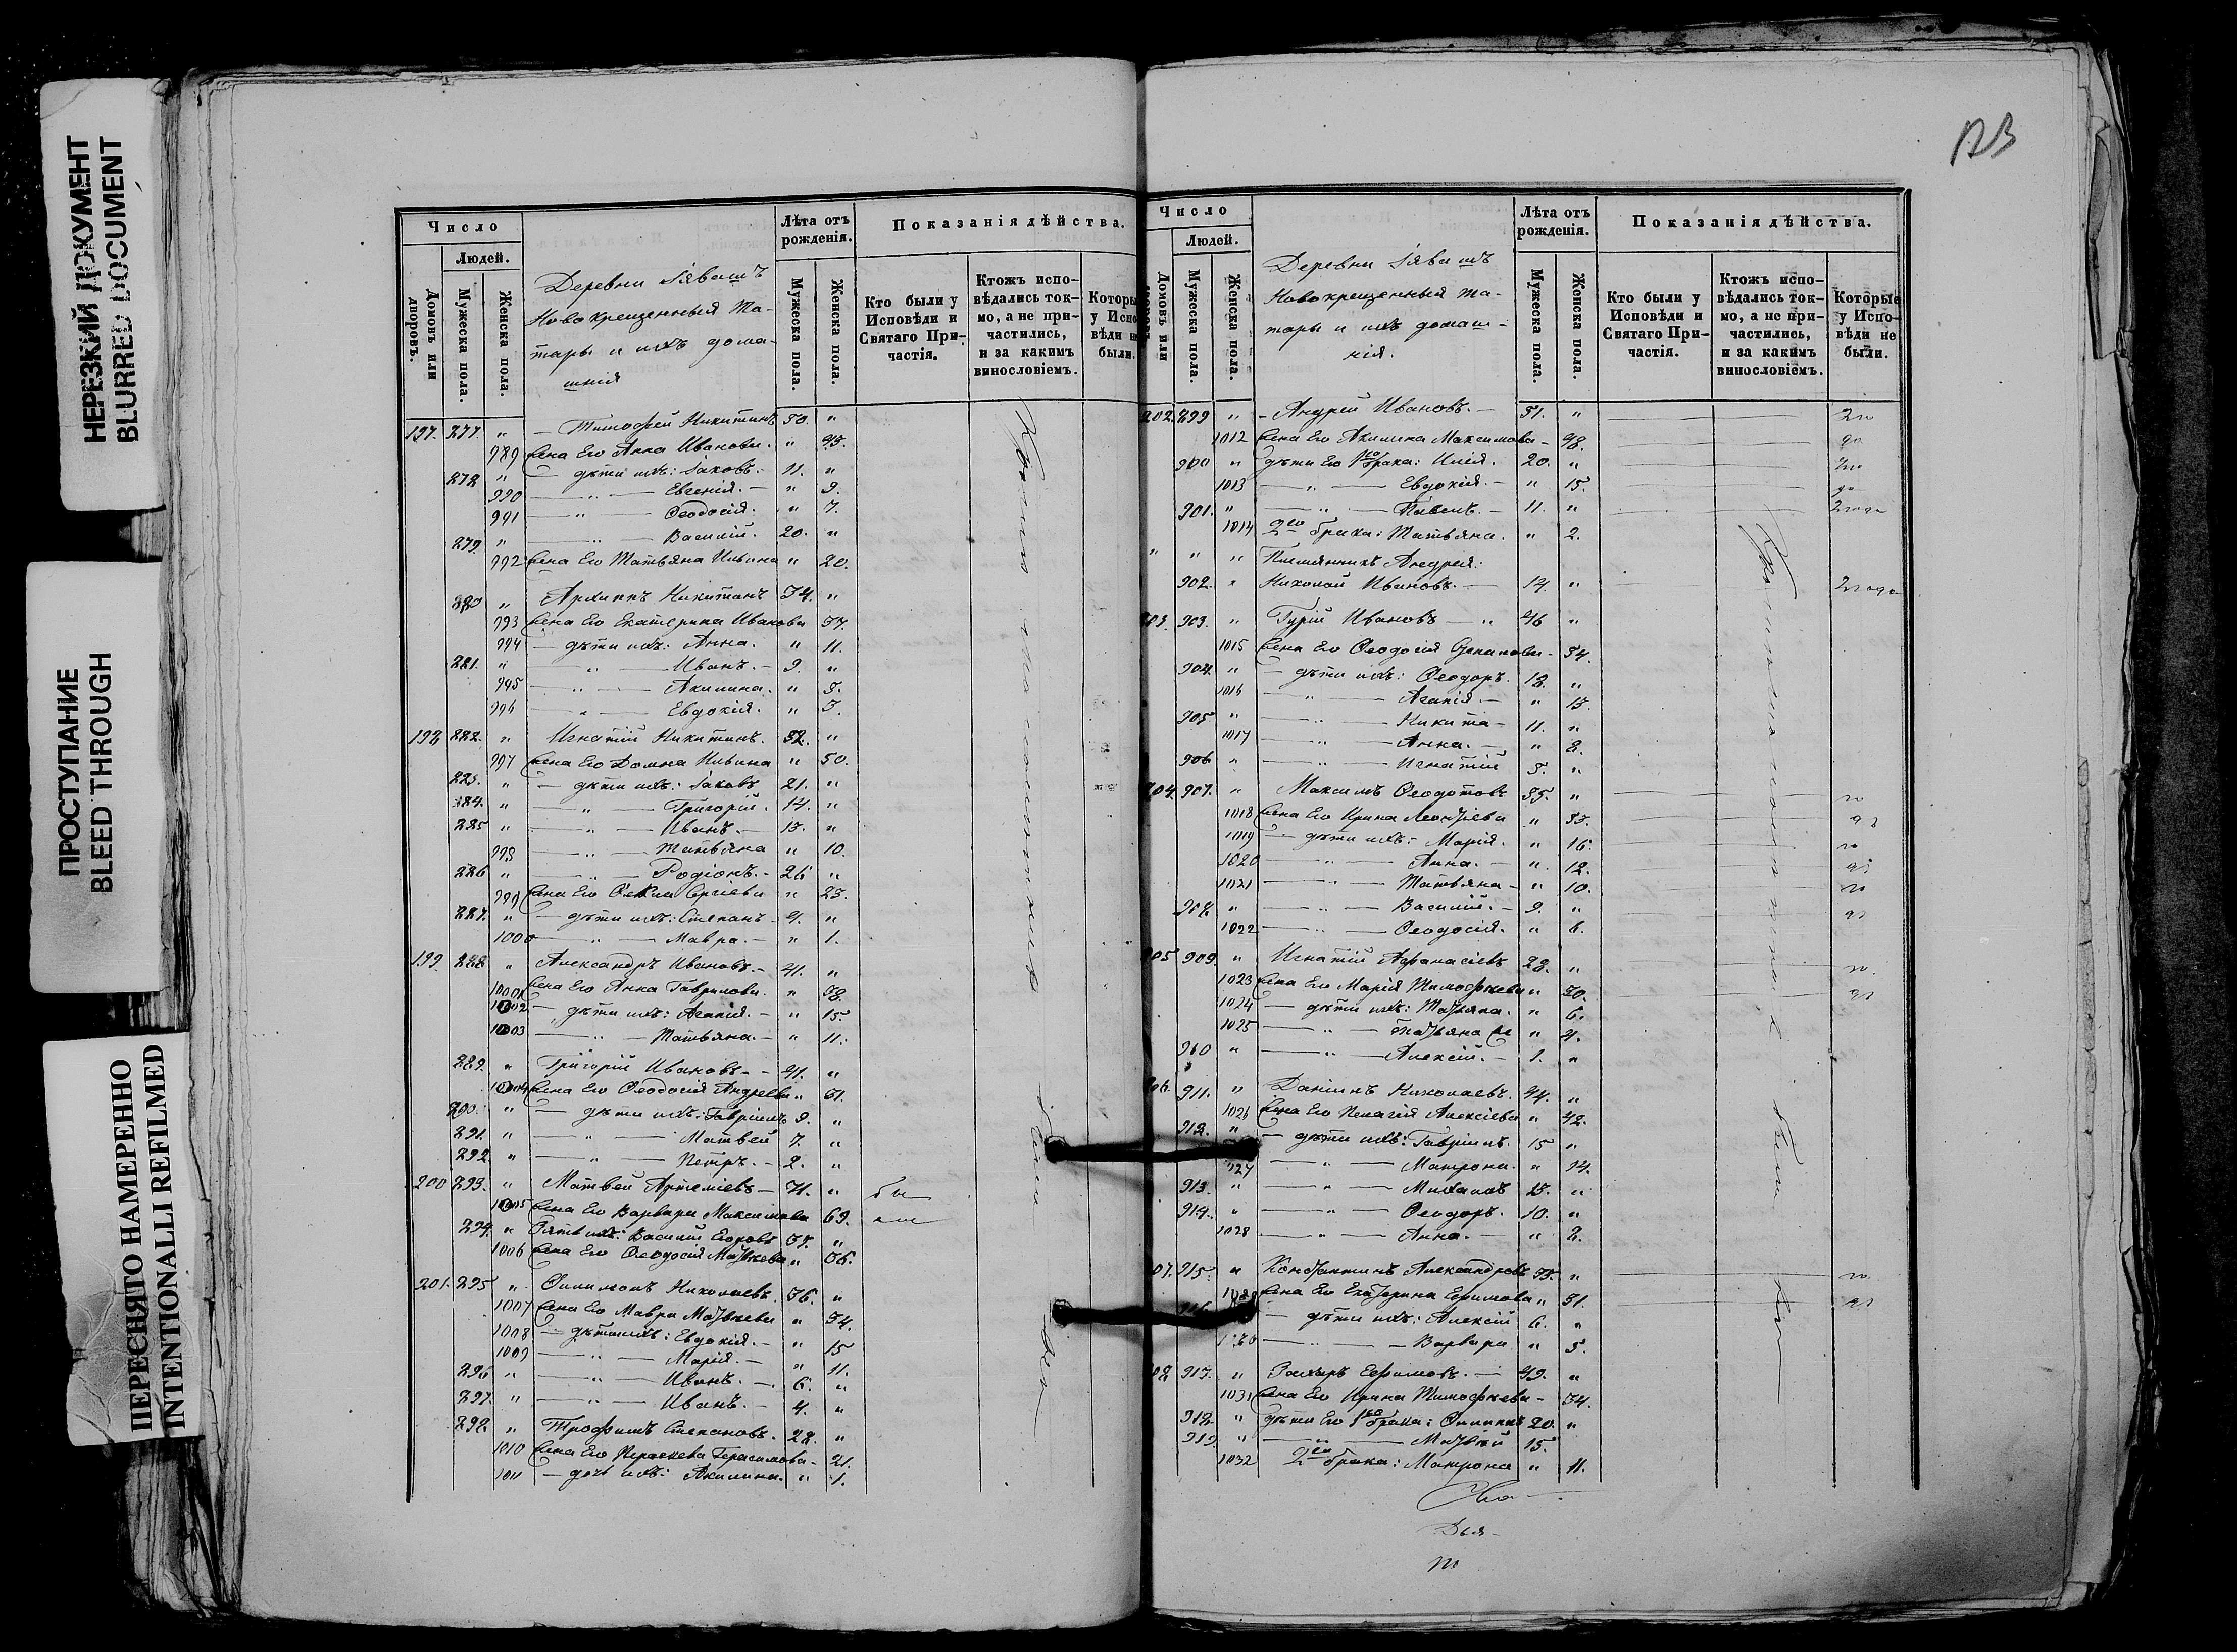 НЕРЕЗКИЙ ДОКУМЕНТ
BLURRED DOCUMENT
ПРОСТУПАНИЕ
BLEED THROUGH
ПЕРЕСНЯТО НАМЕРЕННО
INTENTIONALLI REFILMED
Число
Людей.
Домовъ или дворовъ.
Мужеска пола.
Женска пола.
Деревни
Новокрещенныя Та-
тары и ихъ дома-
шнія
Лѣта отъ рожденія.
Мужеска пола.
Женска пола.
Показанія дѣйства.
Кто были у Исповѣди и Святаго При-частія.
Ктожъ испо-вѣдались ток-мо, а не при-частились, и за какимъ винословіемъ.
197. 277. " Тимофей Никитинъ 50. "
989 Жена Его Анна Иванова. " 45.
278 " дѣти ихъ: Іаковъ. 11. "
990 " Евгенія. " 9.
991 " Ѳеодосія. " 7.
279 " Василій. 20. "
992 Жена Его Татьяна Ильина " 20.
280 " Архиппъ Никитинъ 34. "
993 Жена Его Екатерина Иванова 37.
994 дѣти ихъ: Анна. " 11.
281. " Иванъ. 9. "
995 " Акилина. "
996 " Евдокія. "
198 282. " Игнатій Никитинъ. 52. "
997 Жена Его Домна Ильина " 50.
283. " дѣти ихъ: Іаковъ 21. "
284. " Григорій. 14. "
285 " Иванъ. 13. "
998 " Татьяна " 10.
286 " Родіонъ. 26 "
999 Жена Его Сергіева " 23.
287. " дѣти ихъ: Степанъ 4. "
1000 " Мавра. " 1.
199. 288 " Александръ Ивановъ. 41. "
1001 Жена Его Анна Гаврилова. " 38.
1002 дѣти ихъ: Агапія. " 15
1003 " Татьяна. " 11.
289. " Григорій Ивановъ 41. "
1004 Жена Его Ѳеодосія Андреева "
290. " дѣти ихъ: Гавріилъ 9. "
291. " Матвей 7. "
292. " Петръ. 2. "
200 293. " Матвей Артеміевъ 71. "
1005 Жена Его Варвара Максимова 69.
294. " Зять ихъ: Василій Егоровъ 37. "
1006 Жена Его Ѳеодосія Матвѣева " 36.
201. 295 " Филимонъ Николаевъ. 36. "
1007 Жена Его Мавра Матвѣева " 34.
1008 дѣти ихъ: Евдокія. " 15
1009 " Марія. " 11.
296 " Иванъ. 6. "
297. " Иванъ. 4. "
298. " Трофимъ Степановъ. 28. "
1010 Жена Его Параскева Герасимова 21.
1011 дочь ихъ: Акилина. " 1.
Число
Людей.
Домовъ или
Мужеска пола.
Женска пола.
Деревни
Новокрещенныя та-
тары и ихъ домаш-
нія.
Лѣта отъ рожденія.
Мужеска пола.
Женска пола.
Показанія дѣйства.
Кто были у Исповѣди и Святаго При-частія.
Ктожъ испо-вѣдались ток-мо, а не при-частились, и за какимъ винословіемъ.
Которые у Испо-вѣди не были.
202. 899 " Андрей Ивановъ. 51. "
1012 Жена Его Акилина Максимова 48.
900 " дѣти Его 1го брака: Илія. 20. "
1013 " Евдокія. " 15.
901. " Павелъ. 11. "
1014 2го брака: Татьяна. " 2.
" " " Племянникъ Андрея:
902. " Николай Ивановъ. 14. " 2 года
903. " Гурій Ивановъ 46 "
1015 Жена Его Ѳеодосія 54.
904. " дѣти ихъ: Ѳеодоръ. 18. "
1016 " Агапія. " 13.
905 " Никита 11. "
1017 " Анна. " 8.
906 " Игнатій 5. "
907. " Максимъ Ѳеодотовъ 35. "
1018 Жена Его Ирина Леонтіева " 33.
1019 дѣти ихъ: Марія. " 16.
1020 " Анна. " 12.
1021 " Татьяна " 10.
908 " Василій. 9. "
1022 " Ѳеодосія. " 6.
909. " Игнатій Афанасіевъ 28. "
1023 Жена Его Марія Тимофеева " 30.
1024 дѣти ихъ: Татьяна. " 6.
1025 " Татьяна " 4.
910 " Алексій. 1. "
911. " Даніилъ Николаевъ. 44. "
1026 Жена Его Пелагія Алексіева " 42.
912. " дѣти ихъ: Гавріилъ. 15 "
1027 " Матрона. " 14.
913. " Михаилъ "
914. " Ѳеодоръ. 10. "
1028 " Анна. " 2.
915. " Константинъ Александровъ 35. "
Жена Его Екатерина Ефимова " 31.
дѣти ихъ: Алексій 6. "
" Варвара " 3.
917. " Ефимовъ. 49. "
1031 Жена Его Ирина Тимофеева 34.
918. " дѣти Его 1го брака: Филиппъ 20. "
919 " Матвѣй 15.
1032 2го брака: Матрона " 11.